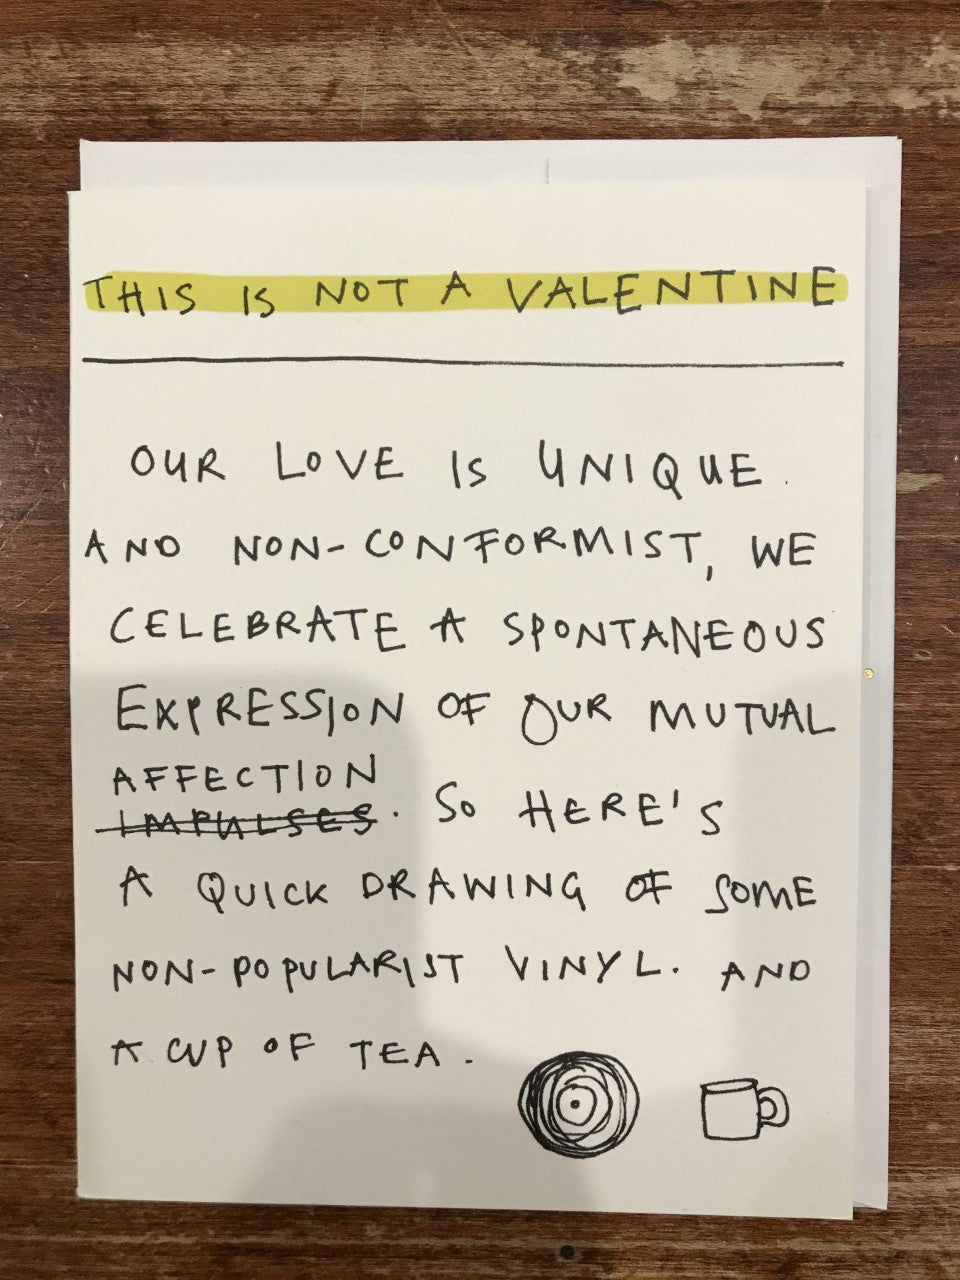 THIS IS NOT A VALENTINE
OUR LOVE IS UNIQUE.
AND NON-CONFORMIST, WE
CELEBRATE A SPONTANEOUS
EXPRESSION OF OUR MUTUAL
AFFECTION
IMPULSES. SO HERE'S
A QUICK DRAWING OF SOME
NON-POPULARIST VINYL. AND
A CUP OF TEA.